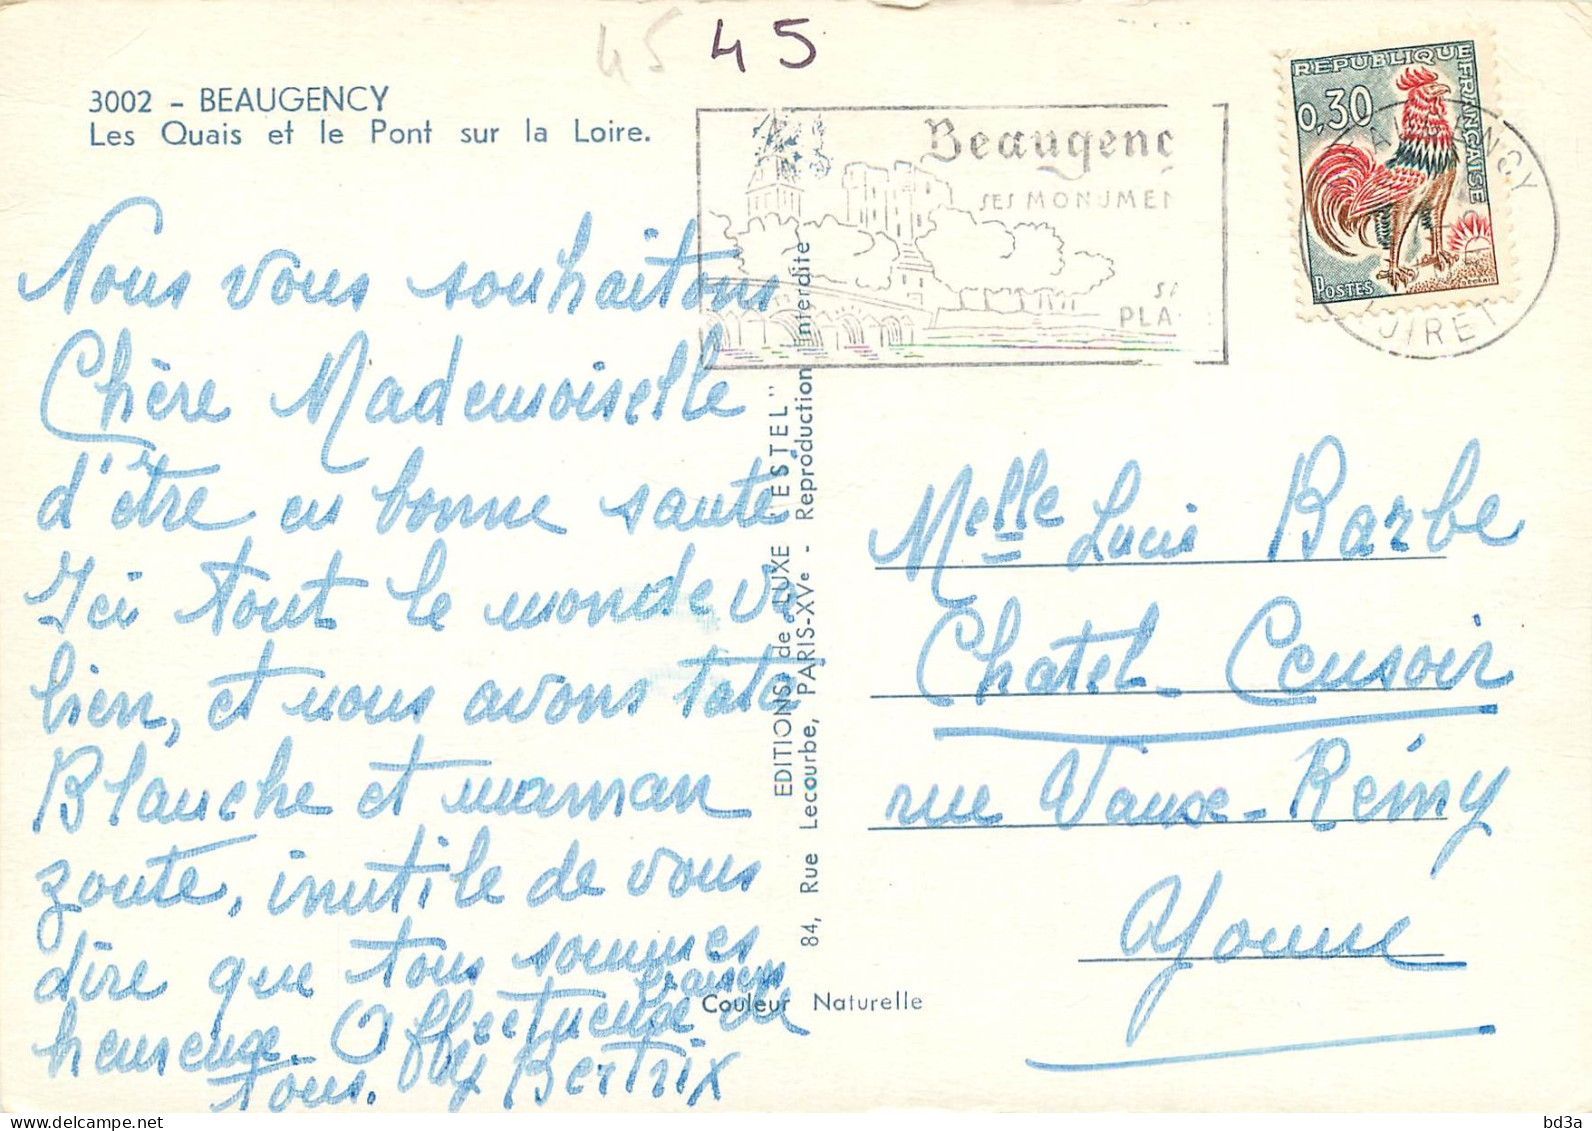 45 45
3002 - BEAUGENCY
Les Quais et le Pont sur la Loire.
Nous vous souhaitons
Chère Mademoiselle
d'être en bonne santé
Ici tout le monde va
bien, et nous avons tata
Blanche et maman
zoute, inutile de vous
dire que tous sommes
heureux. Affectueux baisers
de
tous. Bertrix
EDITIONS de LUXE "ESTEL"
84, Rue Lecourbe, PARIS-XVe - Reproduction interdite
Couleur Naturelle
Beaugenc
SES MONUMEN
SA
PLA
REPUBLIQUE FRANÇAISE
0,30
POSTES
BEAUGENCY
LOIRET
Melle Lucie Barbe
Chatel-Censoir
rue Vaux-Rémy
Yonne
bd3a